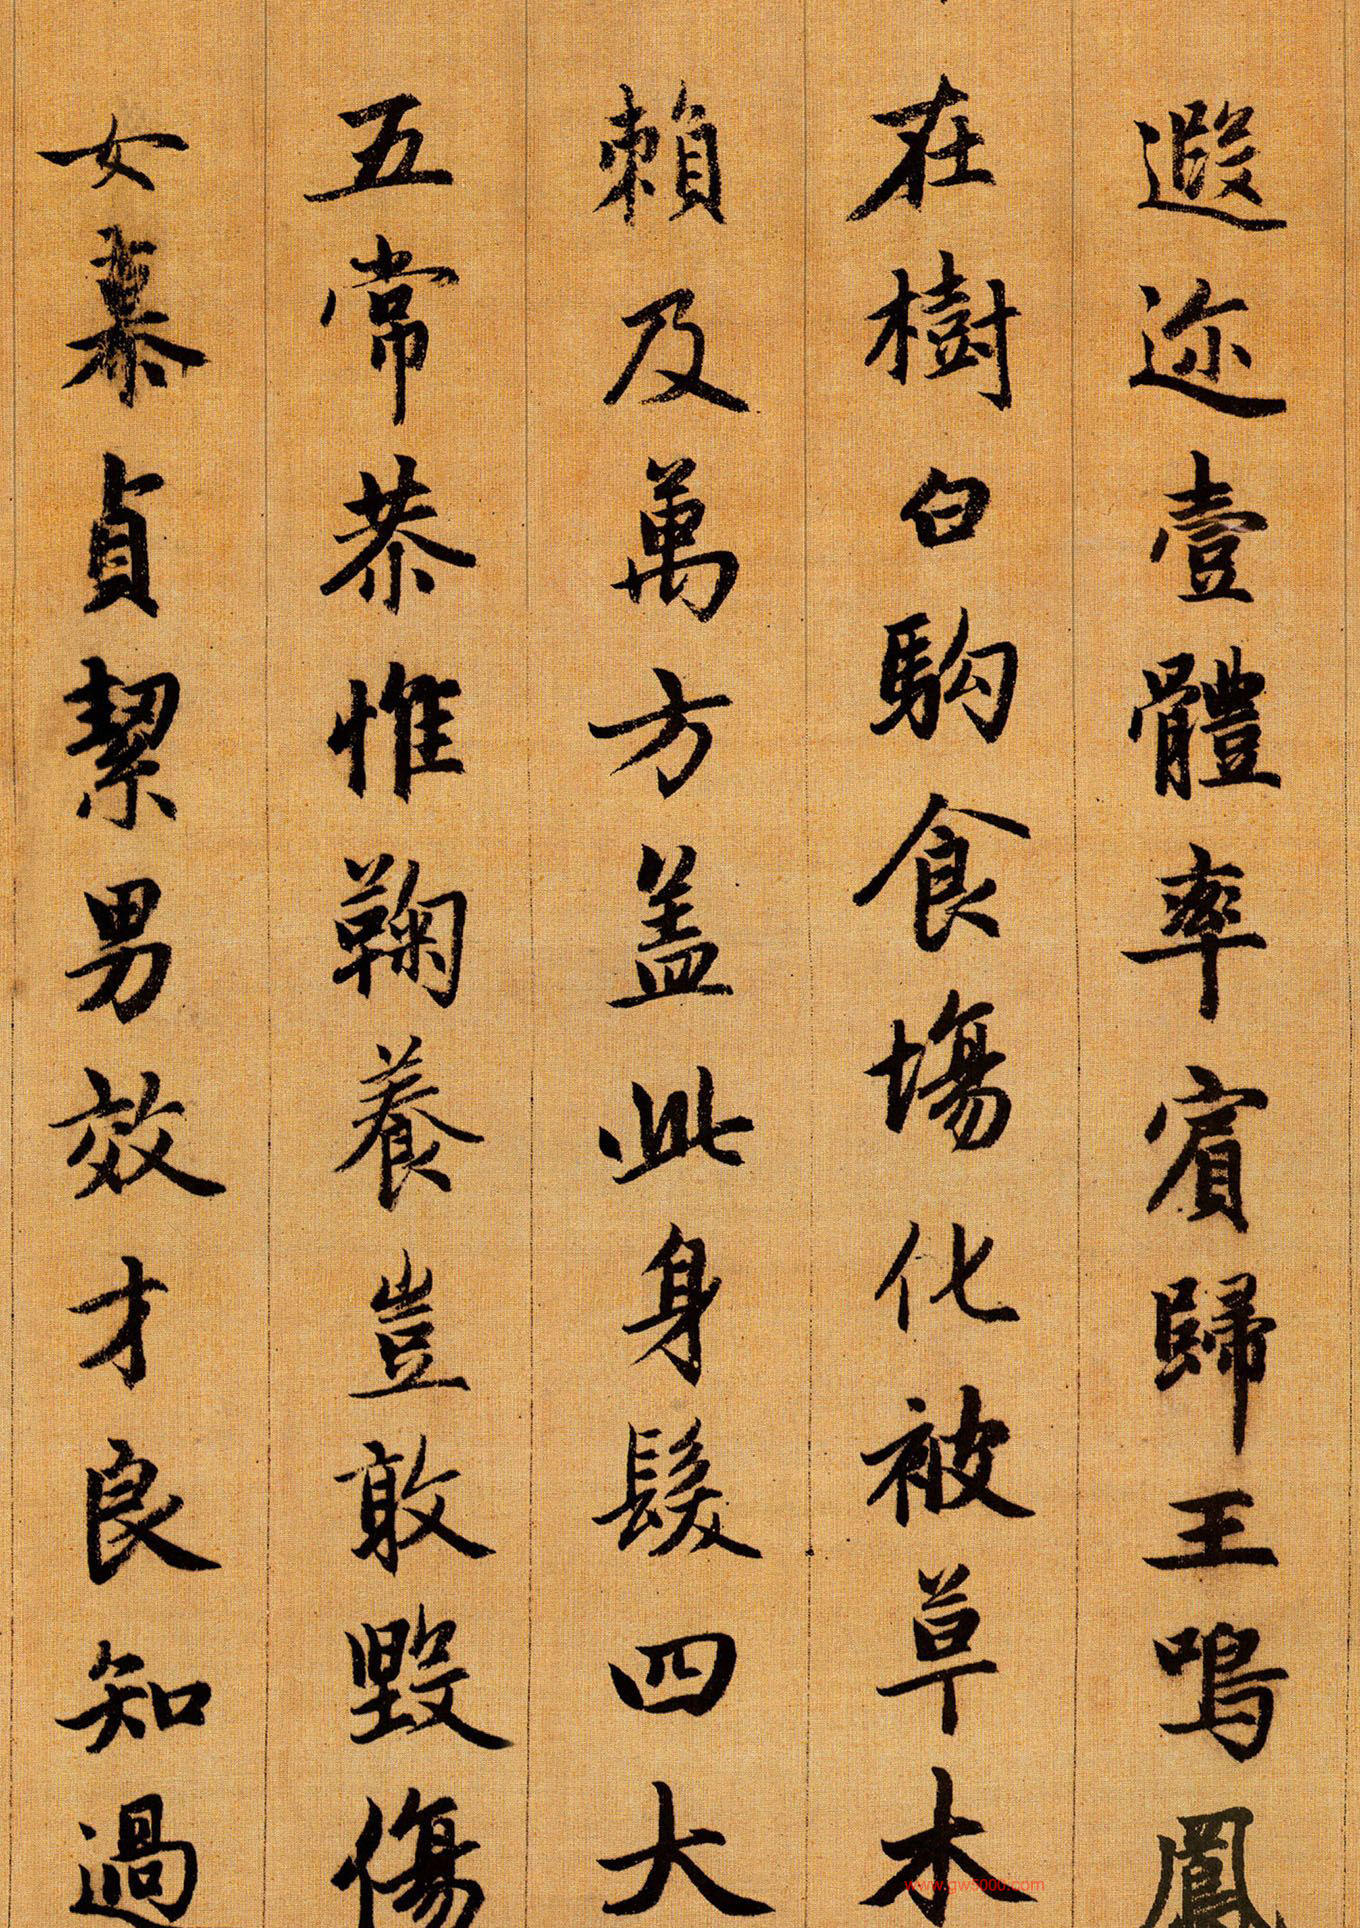 遐迩壹體率賓歸王鳴鳳
在樹白駒食場化被草木
賴及萬方盖此身髮四大
五常恭惟鞠養豈敢毀傷
女慕貞絜男效才良知過
www.gw5000.com